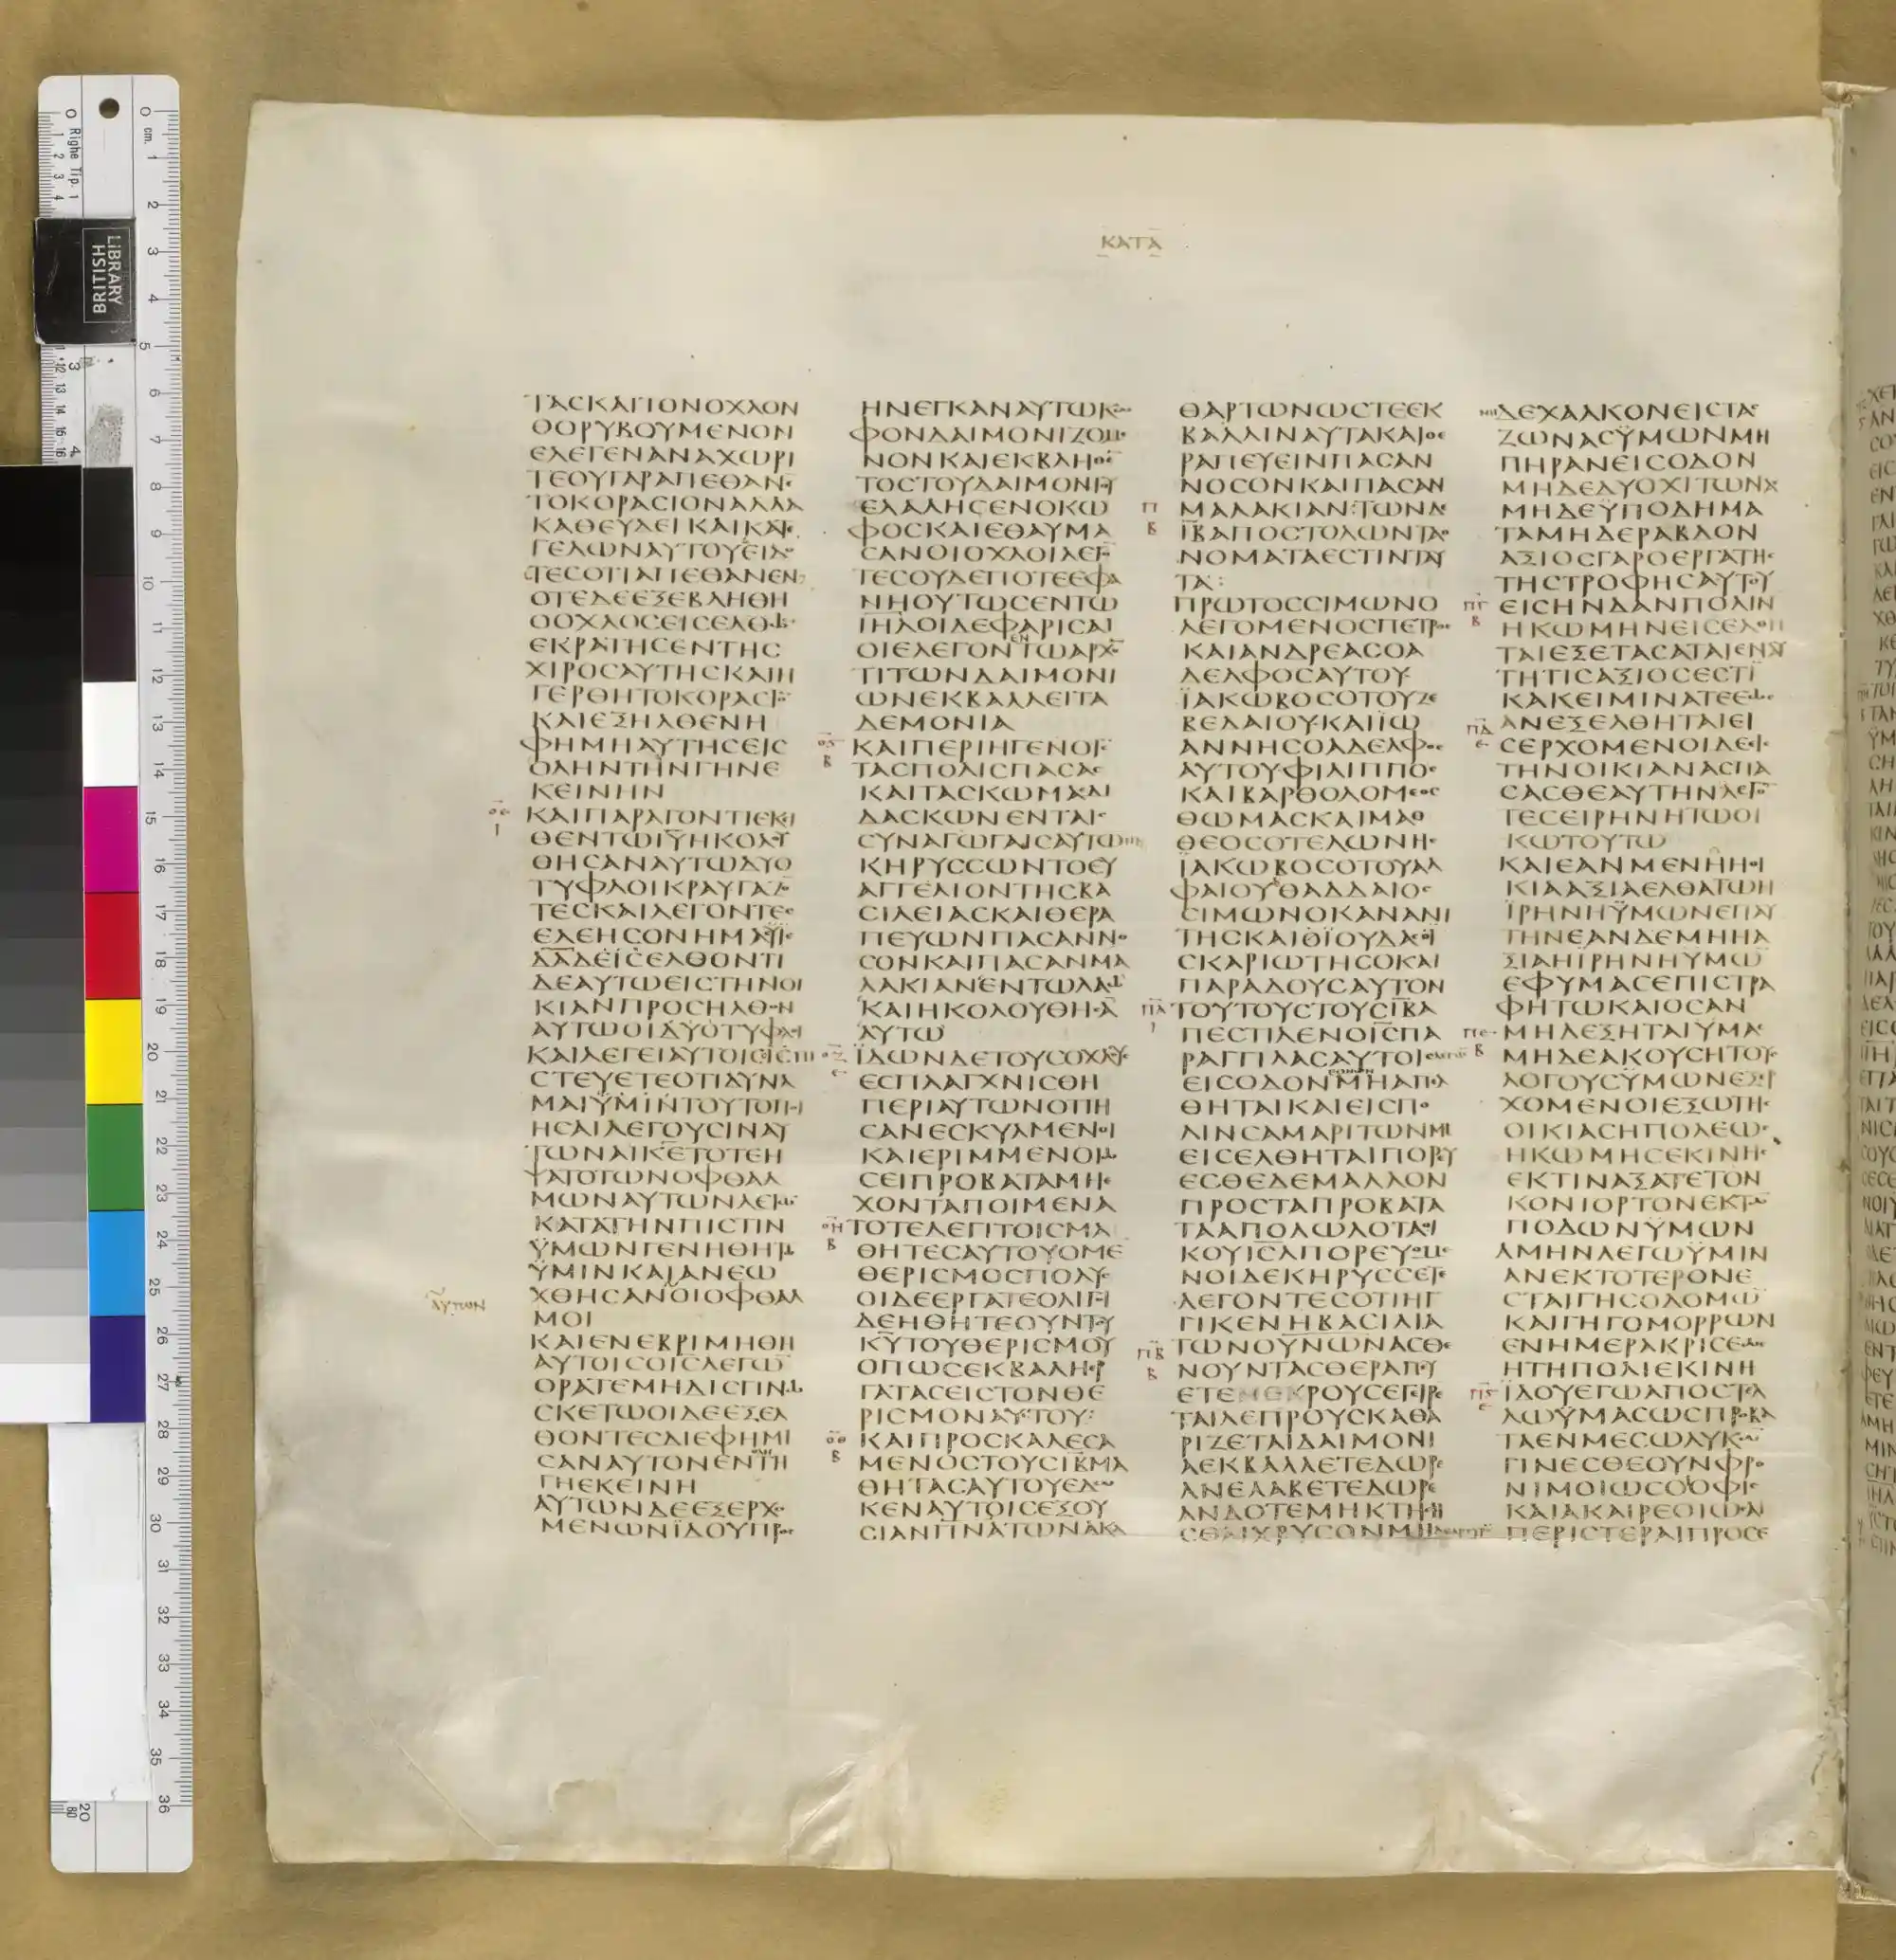 ΚΑΤΑ
ΤΑϹΚΑΙΤΟΝΟΧΛΟΝ
ΘΟΡΥΒΟΥΜΕΝΟΝ
ΕΛΕΓΕΝΑΝΑΧΩΡΙ
ΤΕΟΥΓΑΡΑΠΕΘΑΝΕ
ΤΟΚΟΡΑϹΙΟΝΑΛΛΑ
ΚΑΘΕΥΔΕΙΚΑΙΚΑΤΕ
ΓΕΛΩΝΑΥΤΟΥΕΙΔΟ
ΤΕϹΟΤΙΑΠΕΘΑΝΕΝ
ΟΤΕΔΕΕΞΕΒΛΗΘΗ
ΟΟΧΛΟϹΕΙϹΕΛΘΩΝ
ΕΚΡΑΤΗϹΕΝΤΗϹ
ΧΙΡΟϹΑΥΤΗϹΚΑΙΗ
ΓΕΡΘΗΤΟΚΟΡΑϹΙΟ
ΚΑΙΕΞΗΛΘΕΝΗ
ΦΗΜΗΑΥΤΗϹΕΙϹ
ΟΛΗΝΤΗΝΓΗΝΕ
ΚΕΙΝΗΝ
ΚΑΙΠΑΡΑΓΟΝΤΙΕΚΙ
ΘΕΝΤΩΙΥΗΚΟΛΟΥ
ΘΗϹΑΝΑΥΤΩΔΥΟ
ΤΥΦΛΟΙΚΡΑΥΓΑΖΟ
ΤΕϹΚΑΙΛΕΓΟΝΤΕϹ
ΕΛΕΗϹΟΝΗΜΑϹΥΙΕ
ΔΑΔΕΙϹΕΛΘΟΝΤΙ
ΔΕΑΥΤΩΕΙϹΤΗΝΟΙ
ΚΙΑΝΠΡΟϹΗΛΘΟΝ
ΑΥΤΩΟΙΔΥΟΤΥΦΛΟΙ
ΚΑΙΛΕΓΕΙΑΥΤΟΙϹΟΙϹΠΙ
ϹΤΕΥΕΤΕΟΤΙΔΥΝΑ
ΜΑΙΥΜΙΝΤΟΥΤΟΠΟΙ
ΗϹΑΙΛΕΓΟΥϹΙΝΑΥ
ΤΩΝΑΙΚΕΤΟΤΕΗ
ΨΑΤΟΤΩΝΟΦΘΑΛ
ΜΩΝΑΥΤΩΝΛΕΓΩΝ
ΚΑΤΑΤΗΝΠΙϹΤΙΝ
ΥΜΩΝΓΕΝΗΘΗΤΩ
ΥΜΙΝΚΑΙΑΝΕΩ
ΧΘΗϹΑΝΟΙΟΦΘΑΛ
ΑΥΤΩΝ
ΜΟΙ
ΚΑΙΕΝΕΒΡΙΜΗΘΗ
ΑΥΤΟΙϹΟΙϹΛΕΓΩ
ΟΡΑΤΕΜΗΔΙϹΓΙΝΩ
ϹΚΕΤΩΟΙΔΕΕΞΕΛ
ΘΟΝΤΕϹΔΙΕΦΗΜΙ
ϹΑΝΑΥΤΟΝΕΝΤΗ
ΓΗΕΚΕΙΝΗ
ΑΥΤΩΝΔΕΕΞΕΡΧΟ
ΜΕΝΩΝΙΔΟΥΠΡΟϹ
ΗΝΕΓΚΑΝΑΥΤΩΚΩ
ΦΟΝΔΑΙΜΟΝΙΖΟΜΕ
ΝΟΝΚΑΙΕΚΒΛΗΘΕ
ΤΟϹΤΟΥΔΑΙΜΟΝΙΟΥ
ΕΛΑΛΗϹΕΝΟΚΩ
ΦΟϹΚΑΙΕΘΑΥΜΑ
ϹΑΝΟΙΟΧΛΟΙΛΕΓΟ
ΤΕϹΟΥΔΕΠΟΤΕΕΦΑ
ΝΗΟΥΤΩϹΕΝΤΩ
ΙΗΛΟΙΔΕΦΑΡΙϹΑΙ
ΟΙΕΛΕΓΟΝΕΝΤΩΑΡΧΟ
ΤΙΤΩΝΔΑΙΜΟΝΙ
ΩΝΕΚΒΑΛΛΕΙΤΑ
ΔΕΜΟΝΙΑ
ΚΑΙΠΕΡΙΗΓΕΝΟΙϹ
ΤΑϹΠΟΛΙϹΠΑϹΑϹ
ΚΑΙΤΑϹΚΩΜΑϹΔΙ
ΔΑϹΚΩΝΕΝΤΑΙϹ
ϹΥΝΑΓΩΓΑΙϹΑΥΤΩΝ
ΚΗΡΥϹϹΩΝΤΟΕΥ
ΑΓΓΕΛΙΟΝΤΗϹΒΑ
ϹΙΛΕΙΑϹΚΑΙΘΕΡΑ
ΠΕΥΩΝΠΑϹΑΝΝΟ
ϹΟΝΚΑΙΠΑϹΑΝΜΑ
ΛΑΚΙΑΝΕΝΤΩΛΑΩ
ΚΑΙΗΚΟΛΟΥΘΗϹΑ
ΑΥΤΩ
ΙΔΩΝΔΕΤΟΥϹΟΧΛΟΥϹ
ΕϹΠΛΑΓΧΝΙϹΘΗ
ΠΕΡΙΑΥΤΩΝΟΤΙΗ
ϹΑΝΕϹΚΥΛΜΕΝΟΙ
ΚΑΙΕΡΙΜΜΕΝΟΙΩ
ϹΕΙΠΡΟΒΑΤΑΜΗΕ
ΧΟΝΤΑΠΟΙΜΕΝΑ
ΤΟΤΕΛΕΓΙΤΟΙϹΜΑ
ΘΗΤΕϹΑΥΤΟΥΟΜΕ
ΘΕΡΙϹΜΟϹΠΟΛΥϹ
ΟΙΔΕΕΡΓΑΤΕΟΛΙΓΟΙ
ΔΕΗΘΗΤΕΟΥΝΤΟΥ
ΚΥΤΟΥΘΕΡΙϹΜΟΥ
ΟΠΩϹΕΚΒΑΛΗΕΡ
ΓΑΤΑϹΕΙϹΤΟΝΘΕ
ΡΙϹΜΟΝΑΥΤΟΥ:
ΚΑΙΠΡΟϹΚΑΛΕϹΑ
ΜΕΝΟϹΤΟΥϹΙΒΜΑ
ΘΗΤΑϹΑΥΤΟΥΕΔΩ
ΚΕΝΑΥΤΟΙϹΕΞΟΥ
ϹΙΑΝΠΝΑΤΩΝΑΚΑ
ΘΑΡΤΩΝΩϹΤΕΕΚ
ΒΑΛΛΙΝΑΥΤΑΚΑΙΘΕ
ΡΑΠΕΥΕΙΝΠΑϹΑΝ
ΝΟϹΟΝΚΑΙΠΑϹΑΝ
ΜΑΛΑΚΙΑΝ:ΤΩΝΔΕ
ΙΒΑΠΟϹΤΟΛΩΝΤΑΟ
ΝΟΜΑΤΑΕϹΤΙΝΤΑΥ
ΤΑ:
ΠΡΩΤΟϹϹΙΜΩΝΟ
ΛΕΓΟΜΕΝΟϹΠΕΤΡΟϹ
ΚΑΙΑΝΔΡΕΑϹΟΑ
ΔΕΛΦΟϹΑΥΤΟΥ
ΙΑΚΩΒΟϹΟΤΟΥΖΕ
ΒΕΔΑΙΟΥΚΑΙΙΩ
ΑΝΝΗϹΟΑΔΕΛΦΟϹ
ΑΥΤΟΥΦΙΛΙΠΠΟϹ
ΚΑΙΒΑΡΘΟΛΟΜΕΟϹ
ΘΩΜΑϹΚΑΙΜΑΘ
ΘΕΟϹΟΤΕΛΩΝΗϹ
ΙΑΚΩΒΟϹΟΤΟΥΑΛ
ΦΑΙΟΥΘΑΔΔΑΙΟϹ
ϹΙΜΩΝΟΚΑΝΑΝΙ
ΤΗϹΚΑΙΟΙΟΥΔΑϹΟΙ
ϹΚΑΡΙΩΤΗϹΟΚΑΙ
ΠΑΡΑΔΟΥϹΑΥΤΟΝ
ΤΟΥΤΟΥϹΤΟΥϹΙΒΑ
ΠΕϹΤΙΛΕΝΟΙϹΠΑ
ΡΑΓΓΙΛΑϹΑΥΤΟΙϹ
ΕΙϹΟΔΟΝΕΘΝΩΝΜΗΑΠΕΛ
ΘΗΤΑΙΚΑΙΕΙϹΠΟ
ΛΙΝϹΑΜΑΡΙΤΩΝΜΗ
ΕΙϹΕΛΘΗΤΑΙΠΟΡΕΥ
ΕϹΘΕΔΕΜΑΛΛΟΝ
ΠΡΟϹΤΑΠΡΟΒΑΤΑ
ΤΑΑΠΟΛΩΛΟΤΑΟΙ
ΚΟΥΙϹΛΠΟΡΕΥΟΜΕ
ΝΟΙΔΕΚΗΡΥϹϹΕΤΕ
ΛΕΓΟΝΤΕϹΟΤΙΗΓ
ΓΙΚΕΝΗΒΑϹΙΛΙΑ
ΤΩΝΟΥΝΩΝΑϹΘΕ
ΝΟΥΝΤΑϹΘΕΡΑΠΕΥ
ΕΤΕΝΕΚΡΟΥϹΕΓΙΡΕ
ΤΑΙΛΕΠΡΟΥϹΚΑΘΑ
ΡΙΖΕΤΑΙΔΑΙΜΟΝΙ
ΑΕΚΒΑΛΛΕΤΕΔΩΡΕ
ΑΝΕΛΑΒΕΤΕΔΩΡΕ
ΑΝΔΟΤΕΜΗΚΤΗϹΗ
ϹΘΑΙΧΡΥϹΟΝΜΗ
ΔΕΧΑΛΚΟΝΕΙϹΤΑϹ
ΖΩΝΑϹΥΜΩΝΜΗ
ΠΗΡΑΝΕΙϹΟΔΟΝ
ΜΗΔΕΔΥΟΧΙΤΩΝΑ
ΜΗΔΕΥΠΟΔΗΜΑ
ΤΑΜΗΔΕΡΑΒΔΟΝ
ΑΞΙΟϹΓΑΡΟΕΡΓΑΤΗϹ
ΤΗϹΤΡΟΦΗϹΑΥΤΟΥ
ΕΙϹΗΝΔΑΝΠΟΛΙΝ
ΗΚΩΜΗΝΕΙϹΕΛΘΗ
ΤΑΙΕΞΕΤΑϹΑΤΑΙΕΝΑΥ
ΤΗΤΙϹΑΞΙΟϹΕϹΤΙ
ΚΑΚΕΙΜΙΝΑΤΕΕΩϹ
ΑΝΕΞΕΛΘΗΤΑΙΕΙ
ϹΕΡΧΟΜΕΝΟΙΔΕΙϹ
ΤΗΝΟΙΚΙΑΝΑϹΠΑ
ϹΑϹΘΕΑΥΤΗΝΛΕΓΟ
ΤΕϹΕΙΡΗΝΗΤΩΟΙ
ΚΩΤΟΥΤΩ
ΚΑΙΕΑΝΜΕΝΗΗΟΙ
ΚΙΑΑΞΙΑΕΛΘΑΤΩΗ
ΙΡΗΝΗΥΜΩΝΕΠΑΥ
ΤΗΝΕΑΝΔΕΜΗΗΑ
ΞΙΑΗΙΡΗΝΗΥΜΩ
ΕΦΥΜΑϹΕΠΙϹΤΡΑ
ΦΗΤΩΚΑΙΟϹΑΝ
ΜΗΔΕΞΗΤΑΙΥΜΑϹ
ΜΗΔΕΑΚΟΥϹΗΤΟΥϹ
ΛΟΓΟΥϹΥΜΩΝΕΞΕΡ
ΧΟΜΕΝΟΙΕΞΩΤΗϹ
ΟΙΚΙΑϹΗΠΟΛΕΩϹ
ΗΚΩΜΗϹΕΚΙΝΗϹ
ΕΚΤΙΝΑΞΑΤΕΤΟΝ
ΚΟΝΙΟΡΤΟΝΕΚΤΩ
ΠΟΔΩΝΥΜΩΝ
ΑΜΗΝΛΕΓΩΥΜΙΝ
ΑΝΕΚΤΟΤΕΡΟΝΕ
ϹΤΑΙΓΗϹΟΔΟΜΩ
ΚΑΙΓΗΓΟΜΟΡΡΩΝ
ΕΝΗΜΕΡΑΚΡΙϹΕΩϹ
ΗΤΗΠΟΛΙΕΚΙΝΗ
ΙΔΟΥΕΓΩΑΠΟϹΤΕΛ
ΛΩΥΜΑϹΩϹΠΡΟΒΑ
ΤΑΕΝΜΕϹΩΛΥΚΩΝ
ΓΙΝΕϹΘΕΟΥΝΦΡΟ
ΝΙΜΟΙΩϹΟΟΦΙϹ
ΚΑΙΑΚΑΙΡΕΟΙΩϹΑΙ
ΠΕΡΙϹΤΕΡΑΙΠΡΟϹΕ
LIBRARY
BRITISH
Righe Tip. 1
cm.